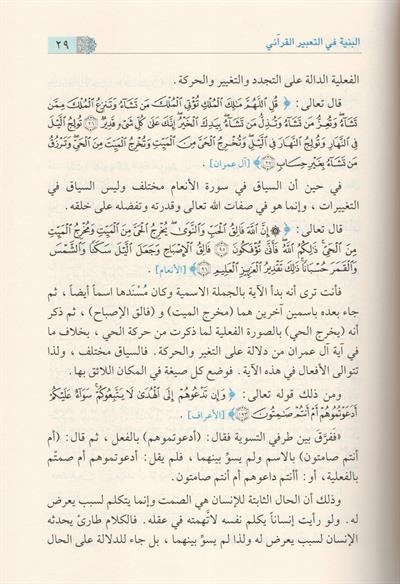 البنية في التعبير القرآني
٢٩
الفعلية الدالة على التجدد والتغيير والحركة.
قال تعالى: ﴿ قُلِ ٱللَّهُمَّ مَٰلِكَ ٱلْمُلْكِ تُؤْتِى ٱلْمُلْكَ مَن تَشَآءُ وَتَنزِعُ ٱلْمُلْكَ مِمَّن
تَشَآءُ وَتُعِزُّ مَن تَشَآءُ وَتُذِلُّ مَن تَشَآءُ بِيَدِكَ ٱلْخَيْرُ إِنَّكَ عَلَىٰ كُلِّ شَىْءٍ قَدِيرٌ ﴿٢٦﴾ تُولِجُ ٱلَّيْلَ
فِى ٱلنَّهَارِ وَتُولِجُ ٱلنَّهَارَ فِى ٱلَّيْلِ وَتُخْرِجُ ٱلْحَىَّ مِنَ ٱلْمَيِّتِ وَتُخْرِجُ ٱلْمَيِّتَ مِنَ ٱلْحَىِّ وَتَرْزُقُ
مَن تَشَآءُ بِغَيْرِ حِسَابٍ ﴿٢٧﴾ ﴾ [آل عمران].
في حين أن السياق في سورة الأنعام مختلف وليس السياق في
التغييرات ، وإنما هو في صفات الله تعالى وقدرته وتفضله على خلقه.
قال تعالى: ﴿ إِنَّ ٱللَّهَ فَالِقُ ٱلْحَبِّ وَٱلنَّوَىٰ يُخْرِجُ ٱلْحَىَّ مِنَ ٱلْمَيِّتِ وَمُخْرِجُ ٱلْمَيِّتِ
مِنَ ٱلْحَىِّ ذَٰلِكُمُ ٱللَّهُ فَأَنَّىٰ تُؤْفَكُونَ ﴿٩٥﴾ فَالِقُ ٱلْإِصْبَاحِ وَجَعَلَ ٱلَّيْلَ سَكَنًا وَٱلشَّمْسَ
وَٱلْقَمَرَ حُسْبَانًا ذَٰلِكَ تَقْدِيرُ ٱلْعَزِيزِ ٱلْعَلِيمِ ﴿٩٦﴾ ﴾ [الأنعام].
فأنت ترى أنه بدأ الآية بالجملة الاسمية وكان مُسْنَدها اسماً أيضاً ، ثم
جاء بعده باسمين آخرين هما (مخرج الميت) و (فالق الإصباح) ، ثم ذكر
أنه (يخرج الحي) بالصورة الفعلية لما ذكرت من حركة الحي ، بخلاف ما
في آية آل عمران من دلالة على التغير والحركة. فالسياق مختلف ، ولذا
تتوالى الأفعال في هذه الآية . فوضع كل صيغة في المكان اللائق بها.
ومن ذلك قوله تعالى: ﴿ وَإِن تَدْعُوهُمْ إِلَى ٱلْهُدَىٰ لَا يَتَّبِعُوكُمْ سَوَآءٌ عَلَيْكُمْ
أَدَعَوْتُمُوهُمْ أَمْ أَنتُمْ صَٰمِتُونَ ﴿١٩٣﴾ ﴾ [الأعراف].
«ففرَّق بين طرفي التسوية فقال: (أدعوتموهم) بالفعل ، ثم قال: (أم
أنتم صامتون) بالاسم ولم يسوِّ بينهما ، فلم يقل: أدعوتموهم أم صمتّم
بالفعلية، أو: أأنتم داعوهم أم أنتم صامتون.
وذلك أن الحال الثابتة للإنسان هي الصمت وإنما يتكلم لسبب يعرض
له . ولو رأيت إنساناً يكلم نفسه لاتَّهمته في عقله. فالكلام طارئ يحدثه
الإنسان لسبب يعرض له ولذا لم يسوِّ بينهما ، بل جاء للدلالة على الحال